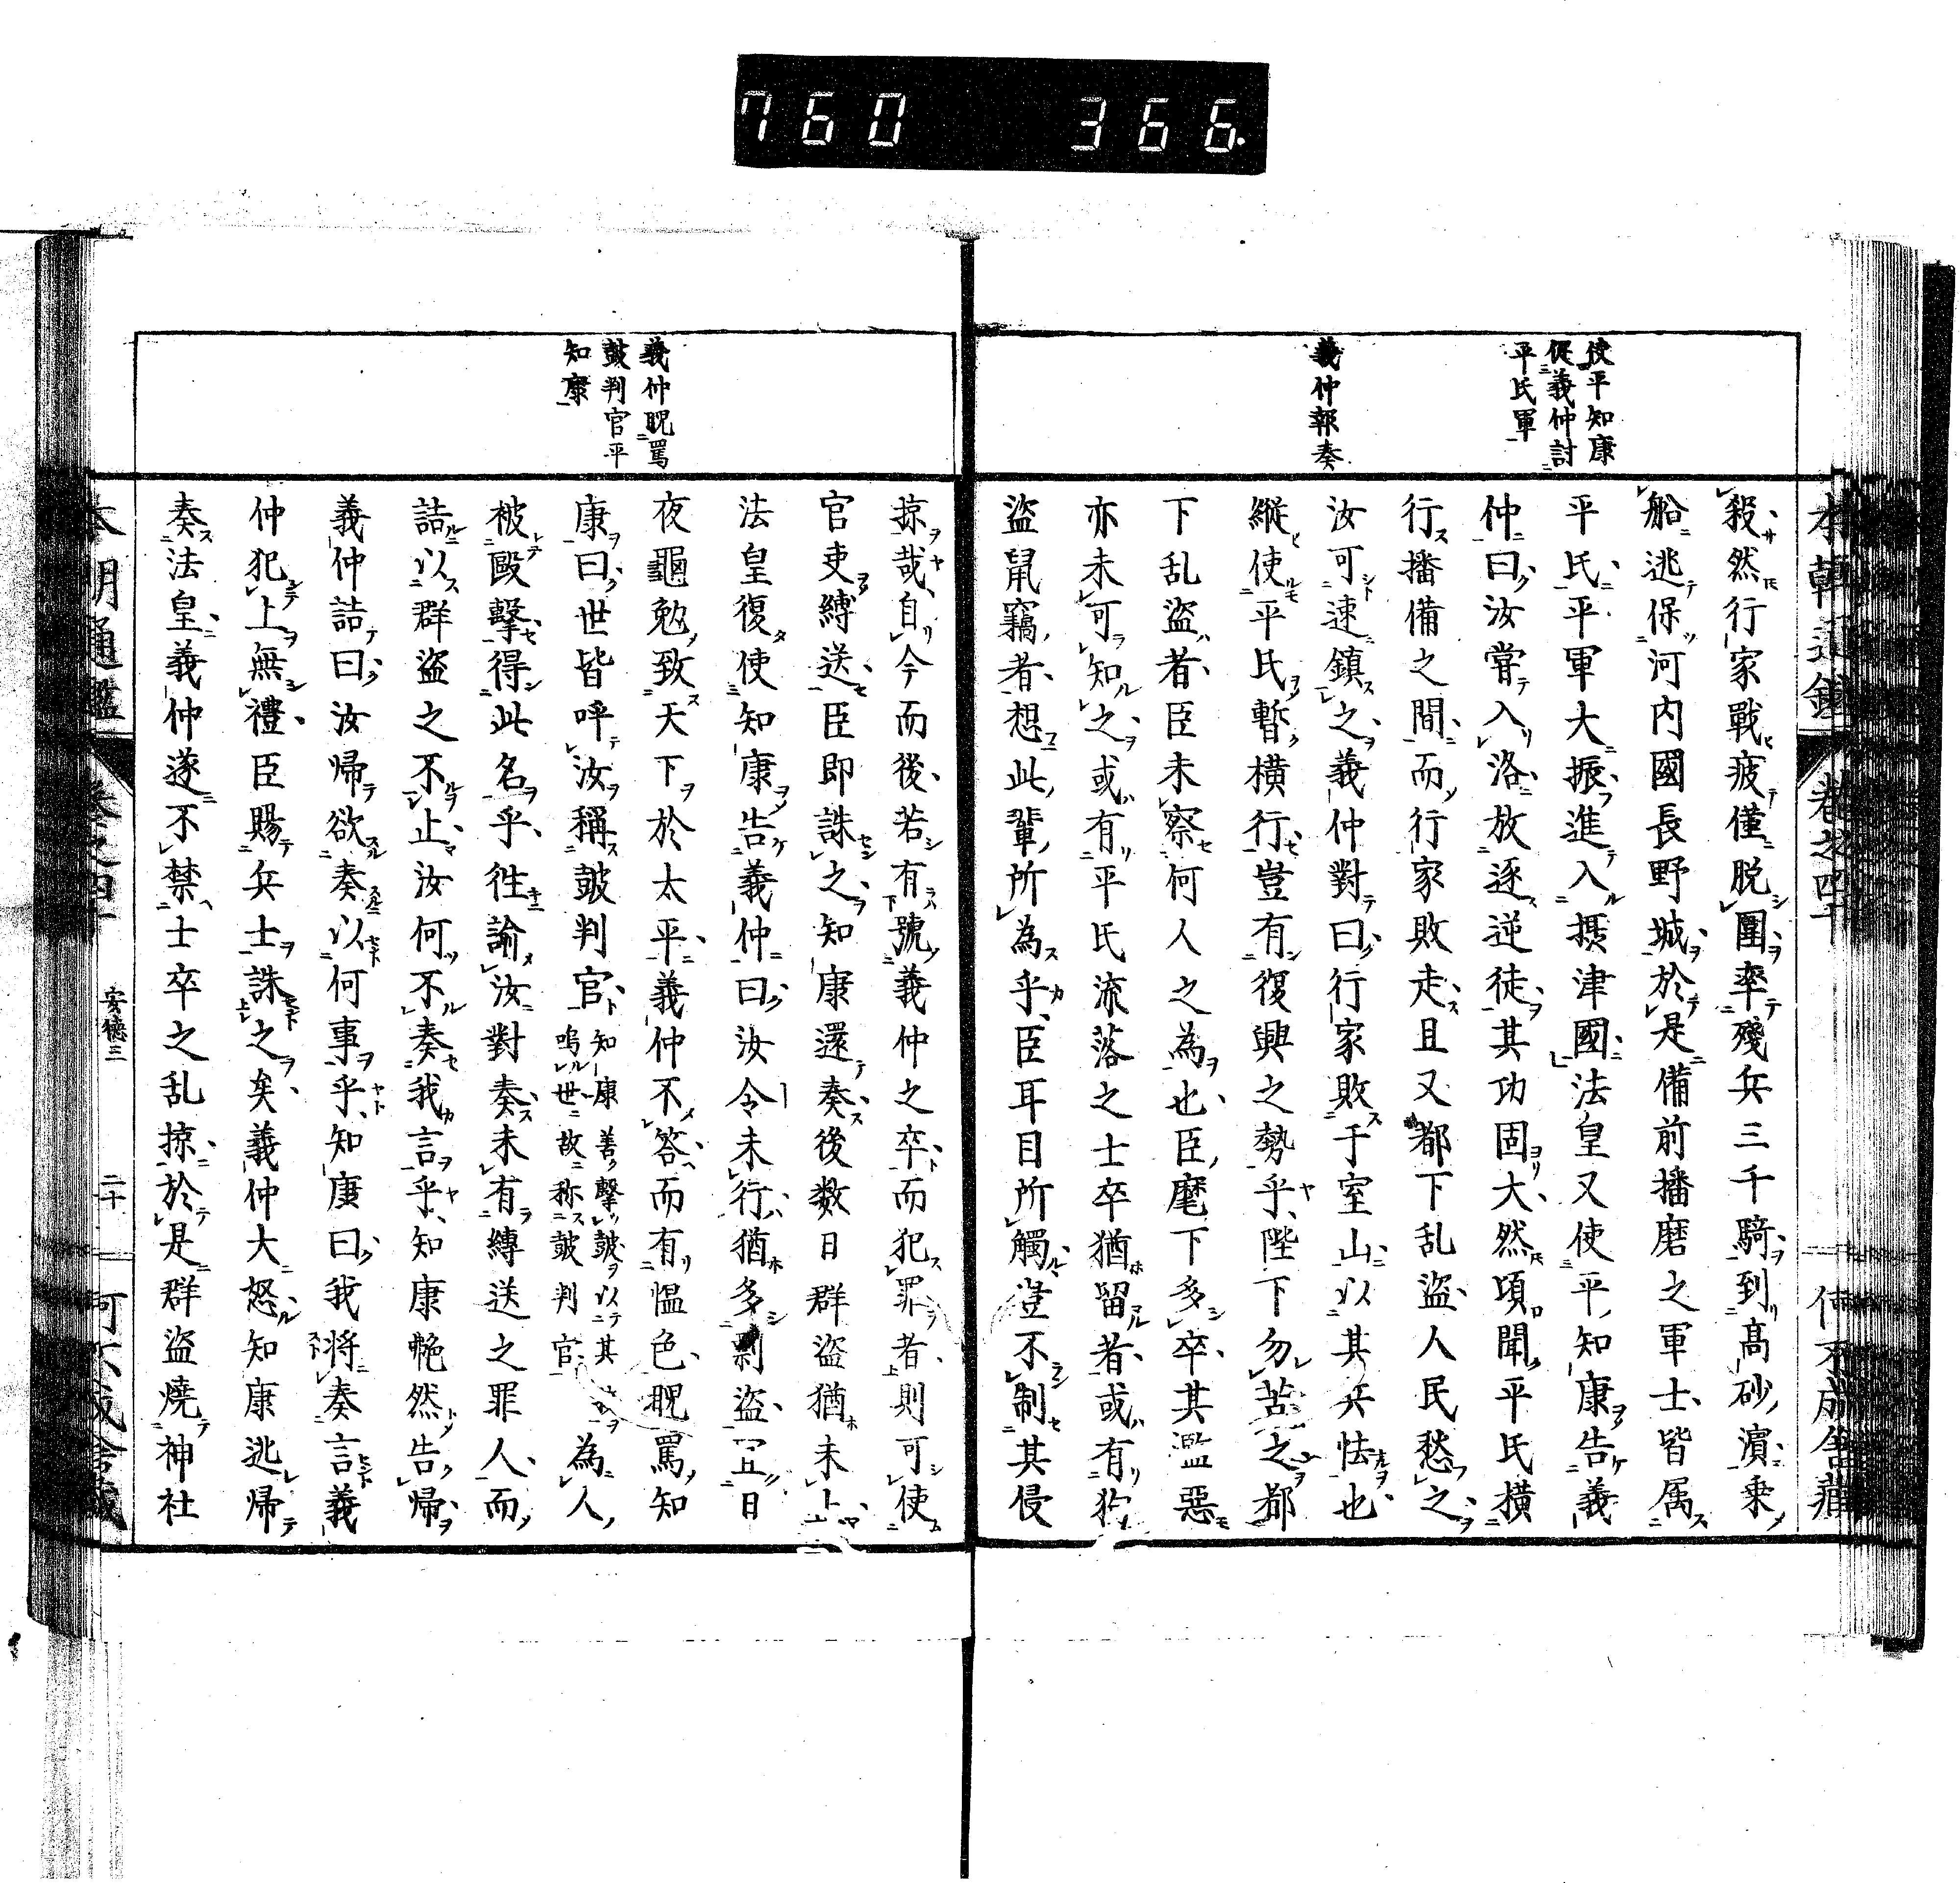 760 366
本朝通鑑 卷之四十
使平知康
從義仲討
平氏軍
義仲報奏
殺然行家戰疲僅脫圍率殘兵三千騎到高砂濱乗
船逃保河内國長野城於是備前播磨之軍士皆属
平氏平軍大振進入摂津國法皇又使平知康告義
仲曰汝嘗入洛放逐逆徒其功固大然頃聞平氏横
行播備之間而行家敗走且又都下乱盗人民愁之
汝可速鎮之義仲對曰行家敗于室山以其兵怯也
縱使平氏暫横行豈有復興之勢乎陛下勿苦之都
下乱盗者臣未察何人之為也臣麾下多卒其濫惡
亦未可知之或有平氏流落之士卒猶留者或有狗
盜鼠竊者想此輩所為乎臣耳目所觸豈不制其侵
義仲睨罵
鼓判官平
知康
掠哉自今而後若有號義仲之卒而犯罪者則可使
官吏縛送臣即誅之知康還奏後数日群盗猶未止
法皇復使知康告義仲曰汝令未行猶多剽盗宜日
夜黽勉致天下於太平義仲不答而有慍色睨罵知
康曰世皆呼汝稱鼓判官知康善擊鼓以其為人
鳴世故称鼓判官
被毆擊得此名乎徃諭汝對奏未有縛送之罪人而
詰以群盗之不止汝何不奏我言乎知康艴然告帰
義仲詰曰汝帰欲奏以何事乎知康曰我将奏言義
仲犯上無禮臣賜兵士誅之矣義仲大怒知康逃帰
奏法皇義仲遂不禁士卒之乱掠於是群盗燒神社
本朝通鑑 卷之四十 安德三 二十